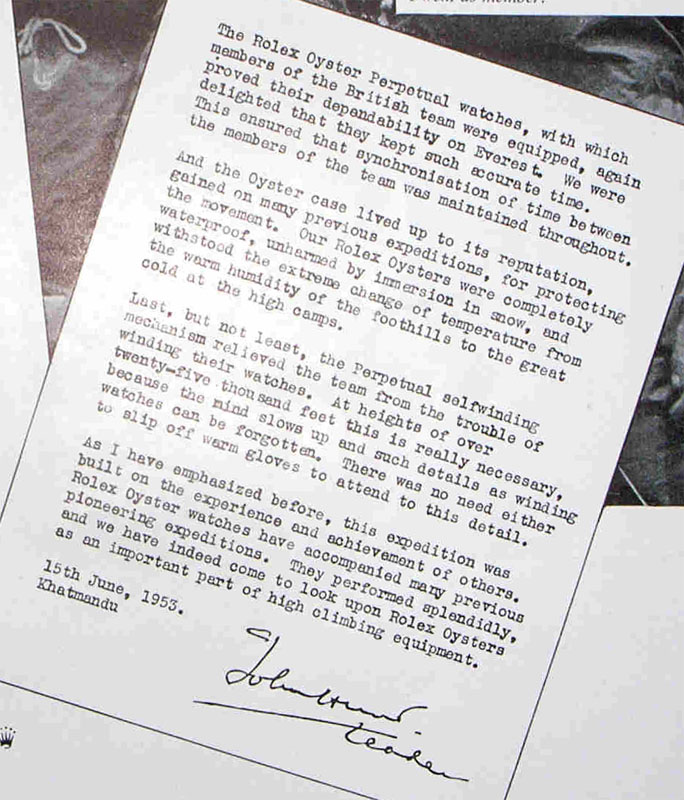 The Rolex Oyster Perpetual watches, with which
members of the British team were equipped, again
proved their dependability on Everest. We were
delighted that they kept such accurate time.
This ensured that synchronisation of time between
the members of the team was maintained throughout.
And the Oyster case lived up to its reputation,
gained on many previous expeditions, for protecting
the movement. Our Rolex Oysters were completely
waterproof, unharmed by immersion in snow, and
withstood the extreme change of temperature from
the warm humidity of the foothills to the great
cold at the high camps.
Last, but not least, the Perpetual selfwinding
mechanism relieved the team from the trouble of
winding their watches. At heights of over
twenty-five thousand feet this is really necessary,
because the mind slows up and such details as winding
watches can be forgotten. There was no need either
to slip off warm gloves to attend to this detail.
As I have emphasized before, this expedition was
built on the experience and achievement of others.
Rolex Oyster watches have accompanied many previous
pioneering expeditions. They performed splendidly,
and we have indeed come to look upon Rolex Oysters
as an important part of high climbing equipment.
15th June, 1953.
Khatmandu
John Hunt
Leader